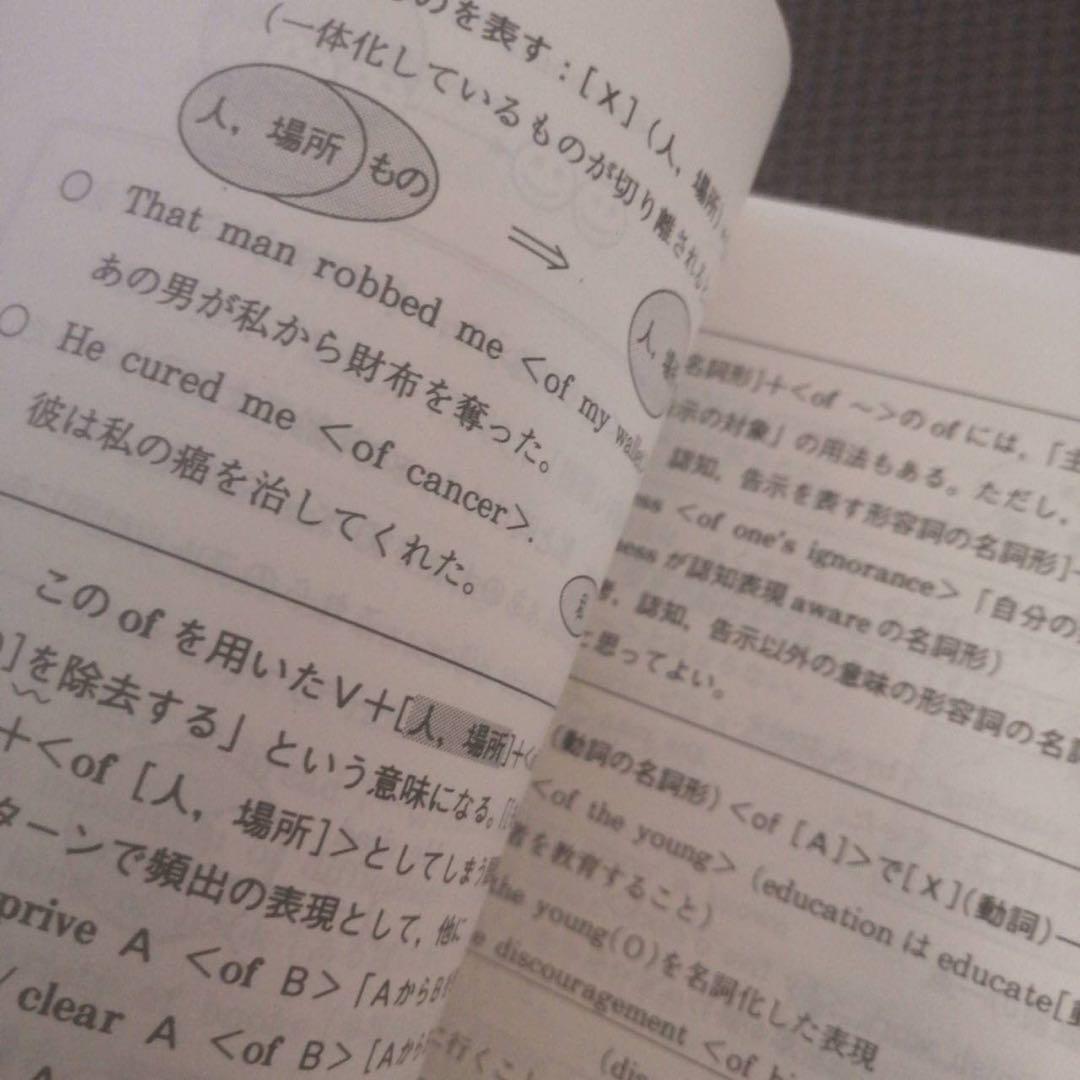 のを表す：[X]（人，場所）
（一体化しているものが切り離される
人，場所 もの
⇒
人，
○ That man robbed me <of my wallet
あの男が私から財布を奪った。
○ He cured me <of cancer>.
彼は私の癌を治してくれた。
このofを用いたV＋[人，場所]＋<
]を除去する」という意味になる。
＋<of [人，場所]>としてしまう
ターンで頻出の表現として，他に
prive A <of B>「AからB
/ clear A <of B>[Aから
名詞形]＋<of ～>のofには，「主
示の対象」の用法もある。ただし，
認知，告示を表す形容詞の名詞形]
ess <of one's ignorance>「自分の
essが認知表現awareの名詞形）
，認知，告示以外の意味の形容詞の名詞
と思ってよい。
（動詞の名詞形）<of [A]>で[X](動詞)—
<of the young> (educationはeducate[動
者を教育すること）
the young(O)を名詞化した表現
discouragement <of
に行くこ
(dis